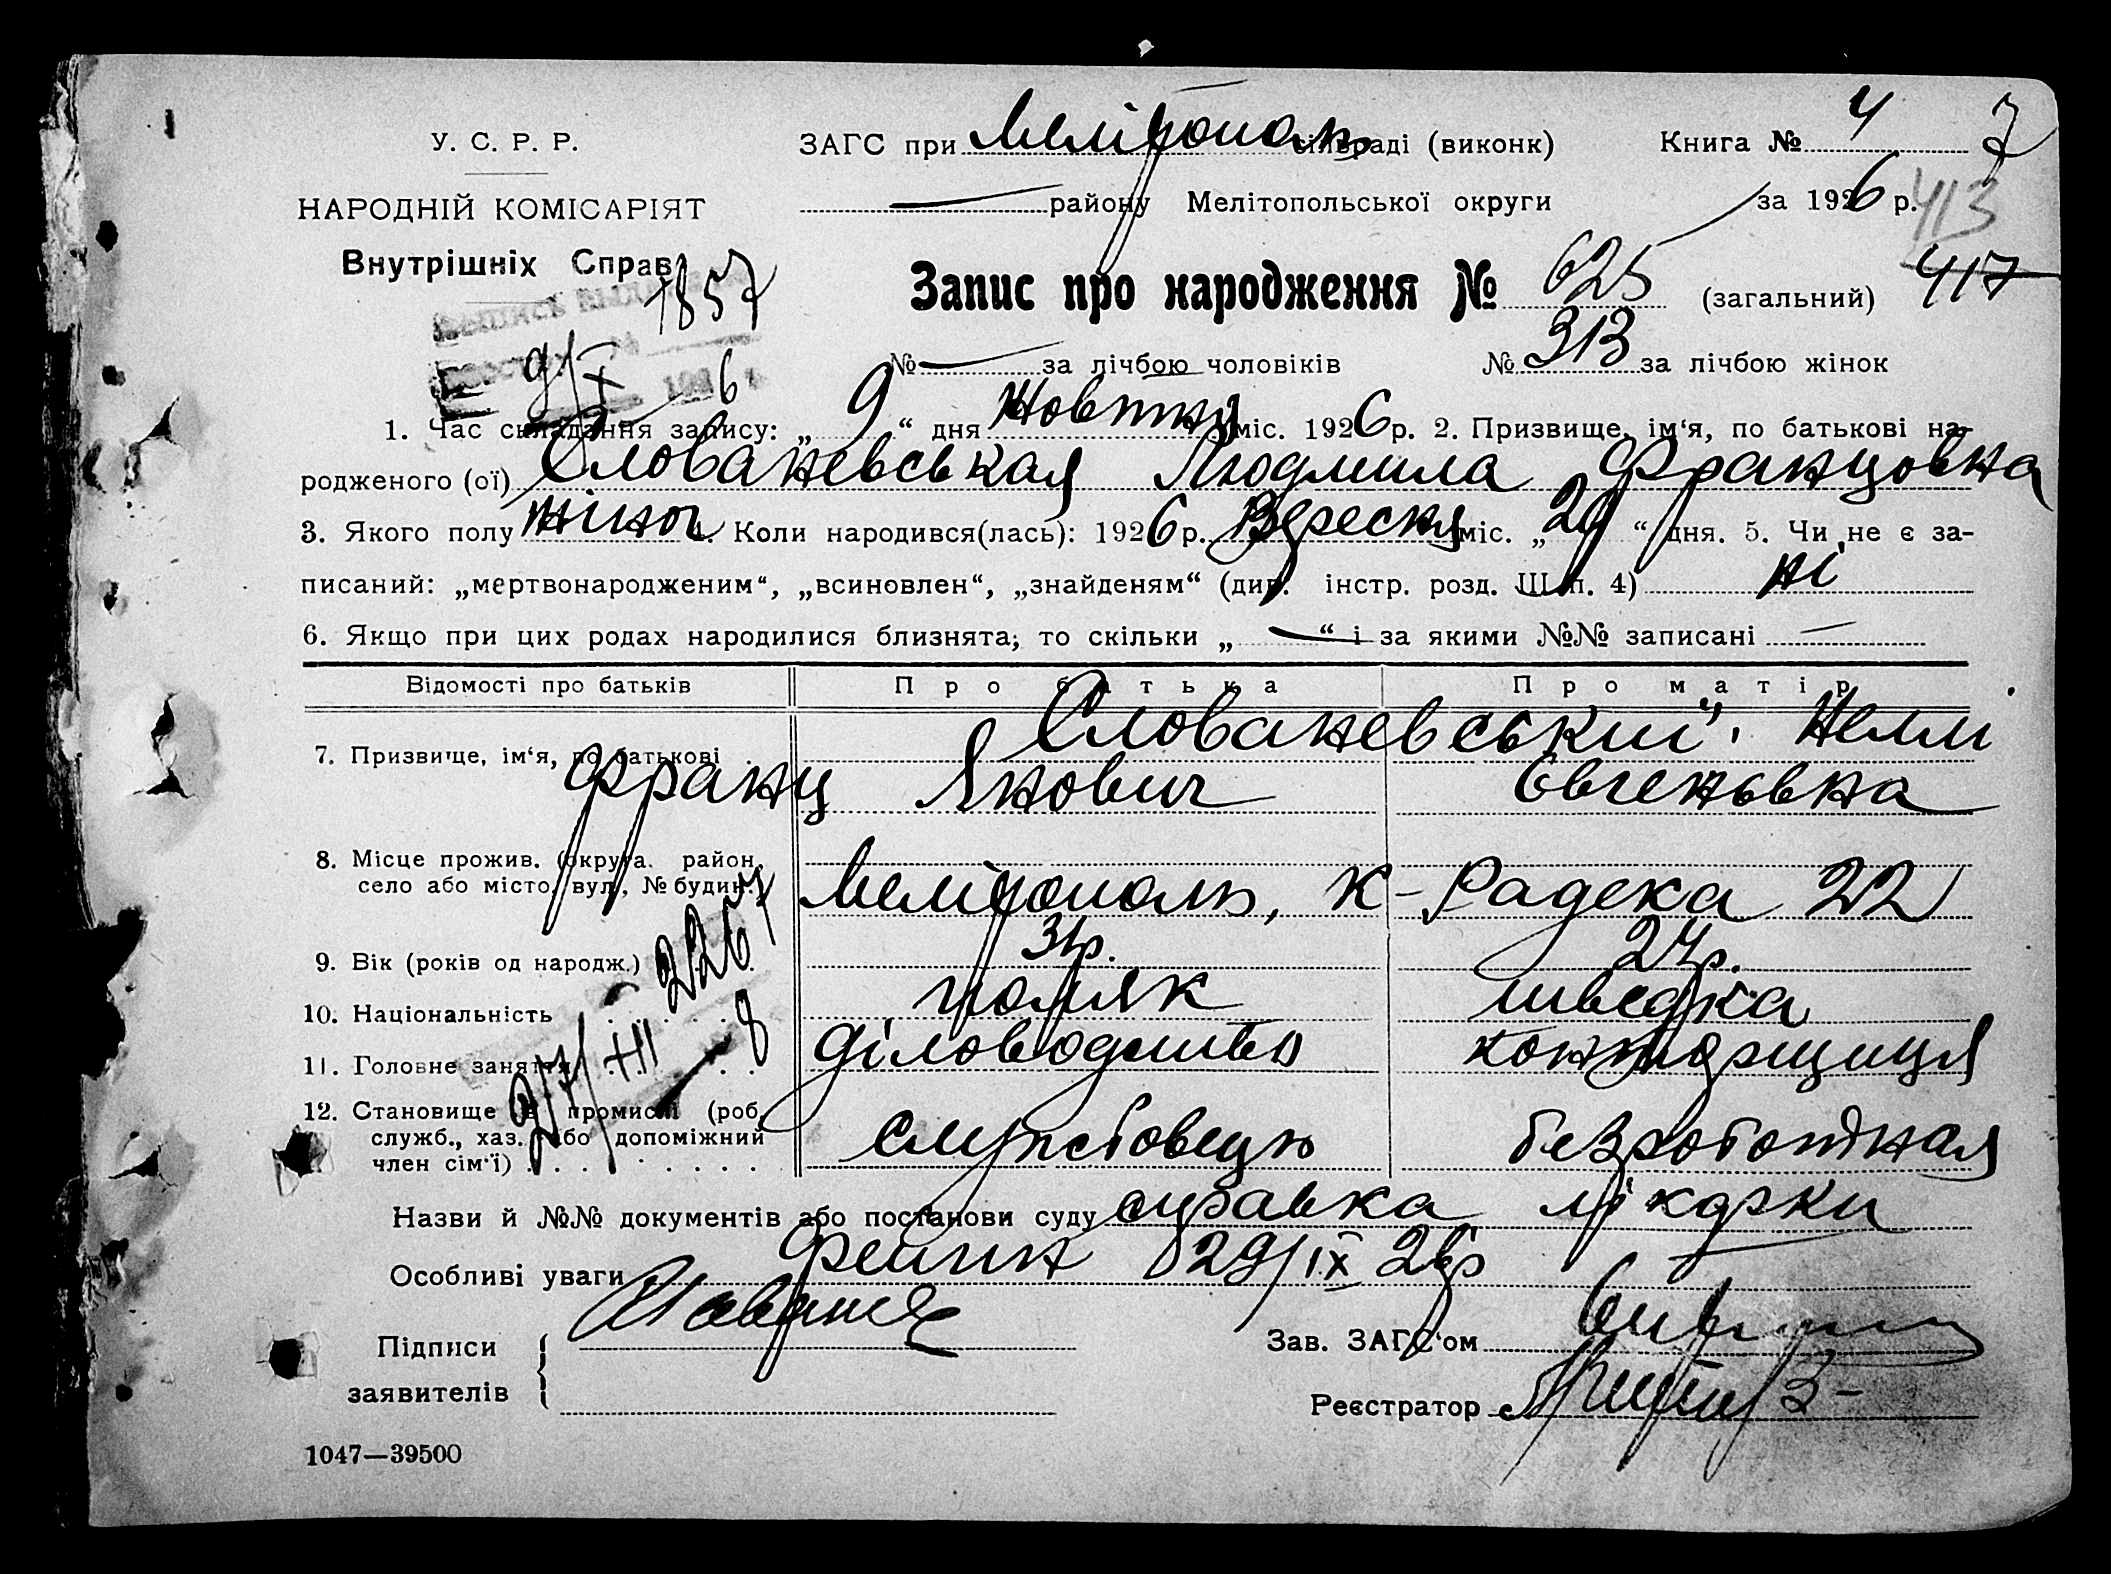 У. С. Р. Р. ЗАГС при Мелітополь сільраді (виконк) Книга № 4 7
НАРОДНІЙ КОМІСАРІЯТ — району Мелітопольської округи за 1926 р. 413
Внутрішніх Справ 1857 Запис про народження № 625 (загальний) 417
9/X 6 № — за лічбою чоловіків № 313 за лічбою жінок
1. Час складання запису: „ 9 “ дня Жовтня міс. 1926 р. 2. Призвище, ім‘я, по батькові на-
родженого (ої) Словачевськая Людмила Францовна
3. Якого полу жіноч 4. Коли народився(лась): 1926 р. Вересня міс. „ 29 “ дня. 5. Чи не є за-
писаний: „мертвонародженим“, „всиновлен“, „знайденям“ (див. інстр. розд. III п. 4) ні
6. Якщо при цих родах народилися близнята; то скільки „ — “ і за якими №№ записані —
Відомості про батьків Про батька Про матір
Словачевський Неллі
7. Призвище, ім‘я, по батькові Франц Янович Євгеньевна
8. Місце прожив. (округа, район,
село або місто, вул., № будин.) Мелітополь, К-Радека 22
9. Вік (років од народж.) 2267 31р. 24р.
10. Національність поляк шведка
11. Головне заняття діловодитво конторщиця
12. Становище в промислі (роб.
служб., хаз. або допоміжний безработная
член сім‘ї)
Назви й №№ документів або постанови суду справка лікарки
Особливі уваги 29/IX 26р
Підписи Зав. ЗАГС‘ом
заявителів Реєстратор
1047—39500